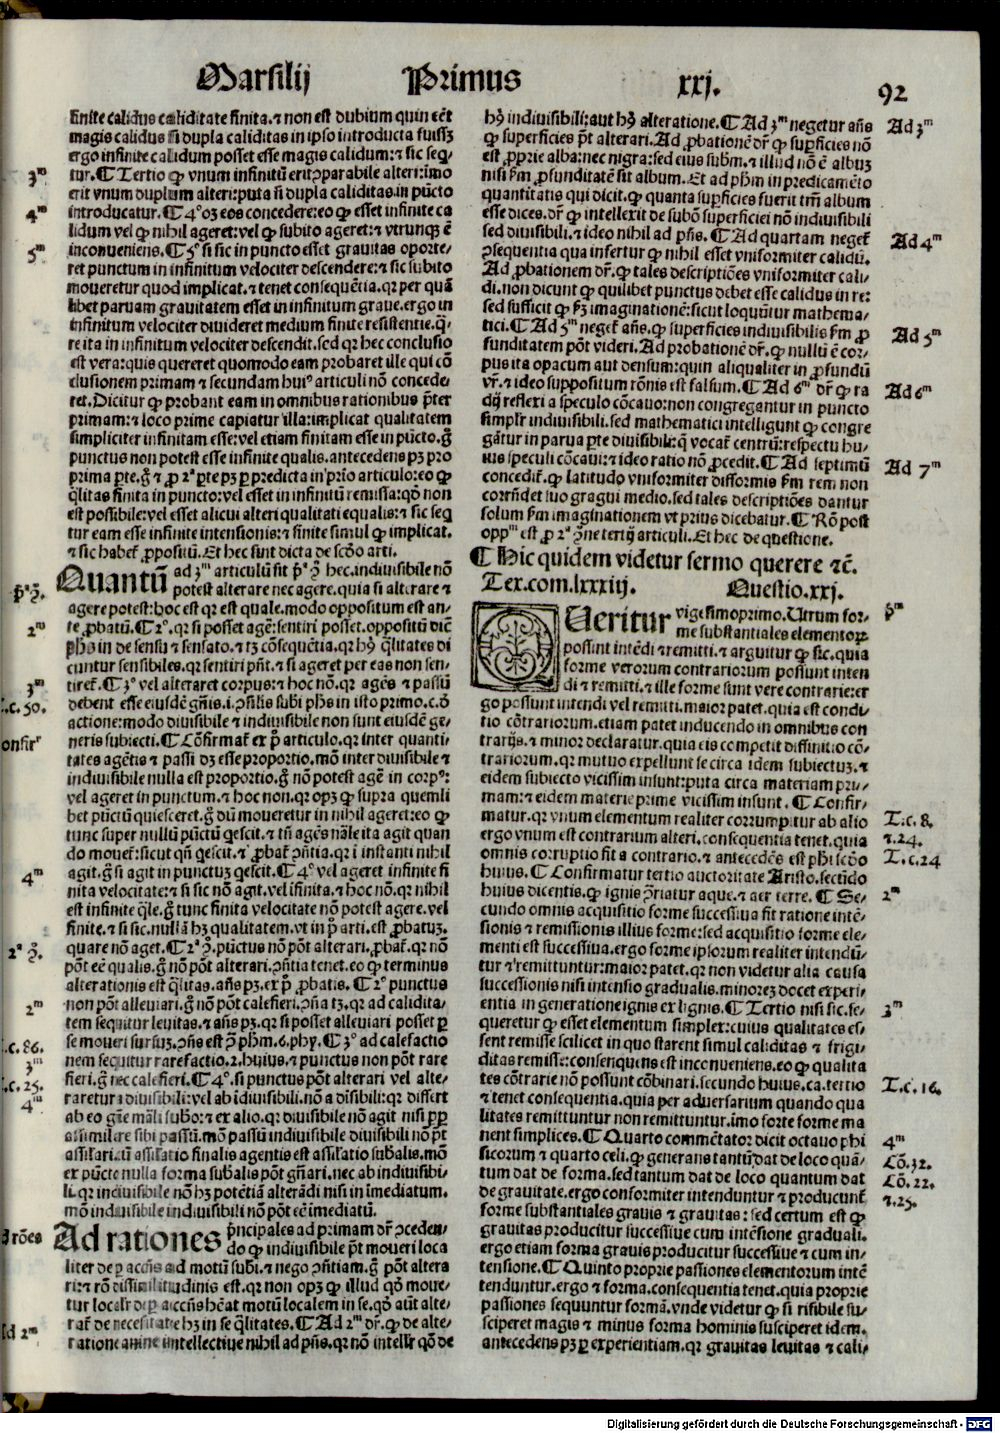 Marsilij Primus xxj. 92
finite calidus caliditate finita. ⁊ non est dubium quin eẽt
magis calidus si dupla caliditas in ipso introducta fuissꝫ
ergo infinite calidum posset esse magis calidum: ⁊ sic seq̃-
3m
tur. ¶ Tertio ꝙ vnum infinitũ erit ꝯparabile alteri: imo
erit vnum duplum alteri: puta si dupla caliditas in pũcto
4m
introducatur. ¶ 4º oꝫ eos concedere: eo ꝙ esset infinite ca
lidum vel ꝙ nihil ageret: vel ꝙ subito ageret: ⁊ vtrunqꝫ ẽ
5m
inconueniens. ¶ 5º si sic in puncto esset grauitas oporte-
ret punctum in infinitum velociter descendere: ⁊ sic subito
moueretur quod implicat. ⁊ tenet consequẽtia. qꝛ per quã
libet paruam grauitatem esset in infinitum graue. ergo in
infinitum velociter diuideret medium finite resistentie. q̃-
re ita in infinitum velociter descendit. sed qꝛ hec conclusio
est vera: quis quereret quomodo eam probaret ille qui cõ
clusionem primam ⁊ secundam huiꝰ articuli nõ concede-
ret. Dicitur ꝙ probant eam in omnibus rationibus p̃ter
primam: ⁊ loco prime capiatur illa: implicat qualitatem
simpliciter infinitam esse: vel etiam finitam esse in pũcto. g̃
punctus non potest esse infinite qualis. antecedens pꝫ pro
prima ꝑte. g̃ ⁊ ꝓ 2ª ꝑte pꝫ ꝑ predicta in prio articulo: eo ꝙ
q̃litas finita in puncto: vel esset in infinitũ remissa: qõ non
est possibile: vel esset alicui alteri qualitati equalis: ⁊ sic seq̃
tur eam esse infinite intensionis: ⁊ finite simul ꝙ implicat.
⁊ sic habet̃ ꝓpositũ. Et hec sunt dicta de scõo arti.
Quantũ ad 3m articulũ sit p̃ª ꝯ̃ hec. indiuisibile nõ
p̃ª ꝯ̃.
potest alterare nec agere. quia si alterare ⁊
agere potest: hoc est qꝛ est quale. modo oppositum est an-
2m
te ꝓbatũ. ¶ 2º. qꝛ si posset agẽ: sentiri posset. oppositũ dicẽ
ph̃s in de sensu ⁊ sensato. ⁊ tꝫ cõsequẽtia. qꝛ hꝰ q̃litates di
cuntur sensibiles. qꝛ sentiri pñt. ⁊ si ageret per eas non sen-
3m
tiret̃. ¶ 3º vel alteraret corpus: ⁊ hoc nõ. qꝛ agẽs ⁊ passũ
.c. 50.
debent esse eiusdẽ gñis. i. ꝯsilis subi ph̃s in isto primo. c. ð
actione: modo diuisibile ⁊ indiuisibile non sunt eiusdẽ ge-
onfirʳ
neris subiecti. ¶ Cõfirmat̃ ex p̃ articulo. qꝛ inter quanti-
tates agẽtis ⁊ passi dꝫ esse proportio. mõ inter diuisibile ⁊
indiuisibile nulla est proportio. g̃ nõ potest agẽ in corpꝰ:
vel ageret in punctum. ⁊ hoc non. qꝛ opꝫ ꝙ supra quemli
bet pũctũ quiesceret. g̃ dũ moueretur in nihil ageret: eo ꝙ
tunc super nullũ pũctũ q̃escit. ⁊ tñ agẽs nãle ita agit quan
do mouet̃: sicut qñ q̃escit. ⁊ ꝓbat̃ ꝯñtia. qꝛ i instanti nihil
4m
agit. g̃ si agit in punctuꝫ q̃escit. ¶ 4º vel ageret infinite fi
nita velocitate: ⁊ si sic nõ agit. vel ifinita. ⁊ hoc nõ. qꝛ nihil
est infinite q̃le. g̃ tunc finita velocitate nõ potest agere. vel
finite. ⁊ si sic. nullã hꝫ qualitatem. vt in p̃ arti. est ꝓbatuꝫ.
2ª ꝯ̃.
quare nõ aget. ¶ 2ª ꝯ̃. pũctus nõ põt alterari. ꝓbat̃. qꝛ nõ
põt eẽ qualis. g̃ nõ põt alterari. ꝯñtia tenet. eo ꝙ terminus
alterationis est q̃litas. añs pꝫ. ex p̃ ꝓbatis. ¶ 2º punctus
2m
non põt alleuiari. g̃ nõ põt calefieri. ꝯña tꝫ. qꝛ ad calidita-
tem sequitur leuitas. ⁊ añs pꝫ. qꝛ si posset alleuiari posset ꝑ
.c. 86.
se moueri sursuꝫ. ꝯñs est ꝯ̃ ph̃m. 6. phy. ¶ 3º ad calefactio
3m
nem sequitur rarefactio. 2. huius. ⁊ punctus non põt rare
.c. 25.
fieri. g̃ nec calefieri. ¶ 4º. si punctus põt alterari vel alte-
4m
raretur a diuisibili: vel ab idiuisibili. nõ a diusibili: qꝛ differt
ab eo gñe mãli subo: ⁊ ex alio. qꝛ diuisibile nõ agit nisi ꝓꝑ
assimilare sibi passũ. mõ passũ indiuisibile diuisibili nõ pt̃
assilari. cũ assilatio finalis agentis est assilatio subalis. mõ
ex pũcto nulla forma subalis põt gñari. nec ab indiuisibi-
li. qꝛ indiuisibile nõ hꝫ potẽtiã alterãdi nisi in imediatum.
mõ indiuisibile indiuisibili nõ põt eẽ imediatũ.
d rões
Ad rationes p̃ncipales ad primam dr̃ ꝓceden-
do ꝙ indiuisibile pt̃ moueri loca
liter de ꝑ accñs ad motũ subi. ⁊ nego ꝯñtiam. g̃ põt altera
ri: ⁊ rõ dissimilitudinis est. qꝛ non opꝫ ꝙ illud qõ moue-
tur localr̃ de ꝑ accñs hẽat motũ localem in se. qõ aũt alte-
d 2m
rat̃ de necessitate hꝫ in se q̃litates. ¶ Ad 2m dr̃. ꝙ de alte-
ratione anime intellectiue nihil ad pñs. qꝛ nõ intellr̃ qõ de
hꝰ indiuisibili: aut hꝰ alteratione. ¶ Ad 3m negetur añs
Ad 3m
ꝙ superficies pt̃ alterari. Ad ꝓbationẽ dr̃ ꝙ suꝑficies nõ
est ꝓprie alba: nec nigra: sed eius subm̃. ⁊ illud nõ ẽ albuꝫ
nisi fm̃ ꝓfunditatẽ sit album. Et ad ph̃m in predicamẽto
quantitatis qui dicit. ꝙ quanta suꝑficies fuerit tm̃ album
esse dices. dr̃ ꝙ intellexit de subõ superficiei nõ indiuisibili
sed diuisibili. ⁊ ideo nihil ad pñs. ¶ Ad quartam neget̃
Ad 4m
ꝯsequentia qua infertur ꝙ nihil esset vniformiter calidũ.
Ad ꝓbationem dr̃. ꝙ tales descriptiões vniformiter cali-
di. non dicunt ꝙ quilibet punctus debet esse calidus in re:
sed sufficit ꝙ fꝫ imaginationẽ: sicut loquũtur mathema-
tici. ¶ Ad 5m neget̃ añs. ꝙ superficies indiuisibilis fm̃ ꝓ
Ad 5m
funditatem põt videri. Ad probationẽ dr̃. ꝙ nullũ ẽ cor-
pus ita opacum aut densum: quin aliqualiter in ꝓfundũ
vr̃. ⁊ ideo suppositum rõnis est falsum. ¶ Ad 6m dr̃ ꝙ ra
Ad 6m
dij reflexi a speculo cõcauo: non congregantur in puncto
simplr̃ indiuisibili. sed mathematici intelligunt ꝙ congre
gãtur in parua ꝑte diuisibile: q̃ vocat̃ centrũ: respectu hu-
ius speculi cõcaui: ⁊ ideo ratio nõ ꝓcedit. ¶ Ad septimũ
Ad 7m
concedit̃. ꝙ latitudo vniformiter difformis fm̃ rem non
corrñdet suo gragui medio. sed tales descriptiões dantur
solum fm̃ imaginationem vt prius dicebatur. ¶ Rõ post
oppm est ꝓ 2ª ꝯ̃ne terij articuli. Et hec de questione.
¶ Hic quidem videtur sermo querere ⁊c̃.
Tex. com. lxxxiij. Questio. xxj.
Queritur vigesimoprimo. Utrum for-
p̃m
me substantiales elementoꝝ
possint intẽdi ⁊ remitti. ⁊ arguitur ꝙ sic. quia
forme verorum contrariorum possunt inten
di ⁊ remitti. ⁊ ille forme sunt vere contrarie: er
go possunt intendi vel remitti. maior patet. quia est condi-
tio cõtrariorum. etiam patet inducendo in omnibus con
trarijs. ⁊ minor declaratur. quia eis competit diffinitio cõ-
trariorum. qꝛ mutuo expellunt se circa idem subiectuꝫ. ⁊
eidem subiecto vicissim insunt: puta circa materiam pri-
mam: ⁊ eidem materie prime vicissim insunt. ¶ Confir-
matur. qꝛ vnum elementum realiter corrumpitur ab alio
T. c. 8.
ergo vnum est contrarium alteri. consequentia tenet. quia
⁊. 24.
omnis corruptio fit a contrario. ⁊ antecedẽs est ph̃i scõo
T. c. 24
huius. ¶ Confirmatur tertio auctoritate Aristo. secũdo
huius dicentis. ꝙ ignis ꝯ̃riatur aque. ⁊ aer terre. ¶ Se-
2m
cundo omnis acquisitio forme successiua fit ratione intẽ-
sionis ⁊ remissionis illius forme: sed acquisitio forme ele-
menti est successiua. ergo forme ipsorum realiter intendũ-
tur ⁊ remittuntur: maior patet. qꝛ non videtur alia causa
successionis nisi intensio gradualis. minoreꝫ docet experi-
entia in generatione ignis ex lignis. ¶ Tertio nisi sic. se-
3m
queretur ꝙ esset elementum simplex: cuius qualitates es-
sent remisse scilicet in quo starent simul caliditas ⁊ frigi-
ditas remisse: consequens est inconueniens. eo ꝙ qualita
tes cõtrarie nõ possunt cõbinari. secundo huius. ca. tertio
T. c. 16.
⁊ tenet consequentia. quia per aduersarium quando qua
litates remittuntur non remittuntur. imo forte forme ma
nent simplices. ¶ Quarto commẽtator dicit octauo phi
4m
sicorum ⁊ quarto celi. ꝙ generans tantũ dat de loco quã-
Cõ. 32.
tum dat de forma. sed tantum dat de loco quantum dat
Cõ. 22.
de grauitate. ergo conformiter intenduntur ⁊ producunt̃
⁊. 25.
forme substantiales grauis ⁊ grauitas: sed certum est ꝙ
grauitas producitur successiue cum intẽsione graduali.
ergo etiam forma grauis producitur successiue ⁊ cum in-
tensione. ¶ Quinto proprie passiones elementorum intẽ
tenduntur. ergo ⁊ forma. consequentia tenet. quia proprie
passiones sequuntur formã. vnde videtur ꝙ si risibile su-
sciperet magis ⁊ minus forma hominis susciperet idem.
antecedens pꝫ ꝑ experientiam. qꝛ grauitas leuitas ⁊ cali-
Digitalisierung gefördert durch die Deutsche Forschungsgemeinschaft - DFG